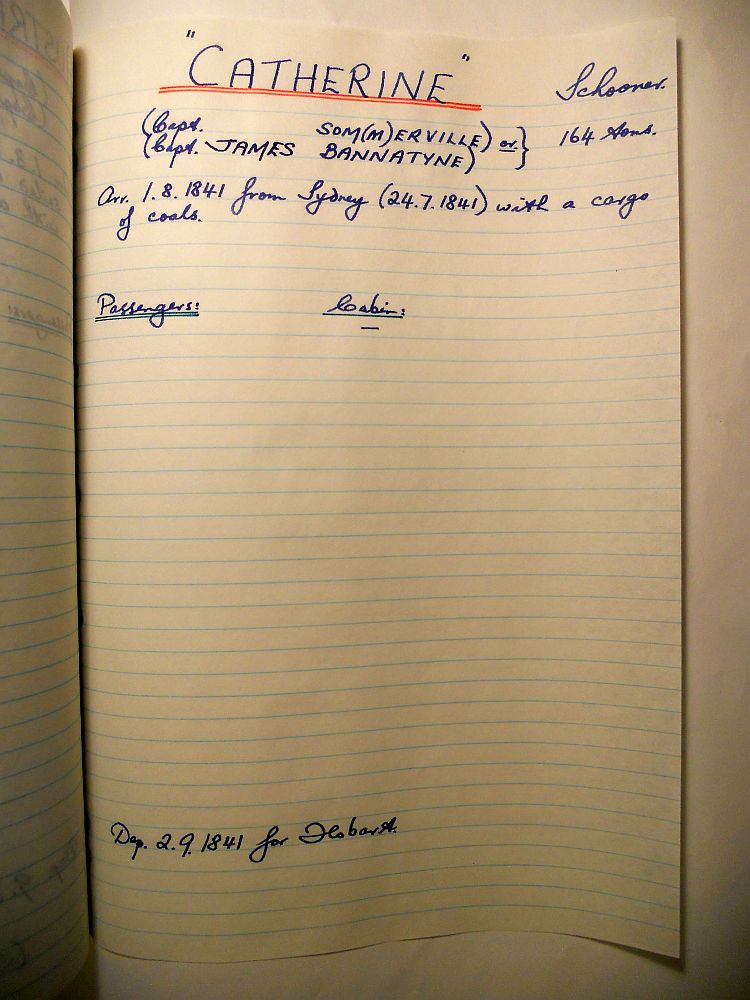 "CATHERINE" Schooner.
(Capt. SOM(M)ERVILLE) or } 164 tons.
(Capt. JAMES BANNATYNE)
Arr. 1.8.1841 from Sydney (24.7.1841) with a cargo
of coals.
Passengers: Cabin:
—
Dep. 2.9.1841 for Hobart.